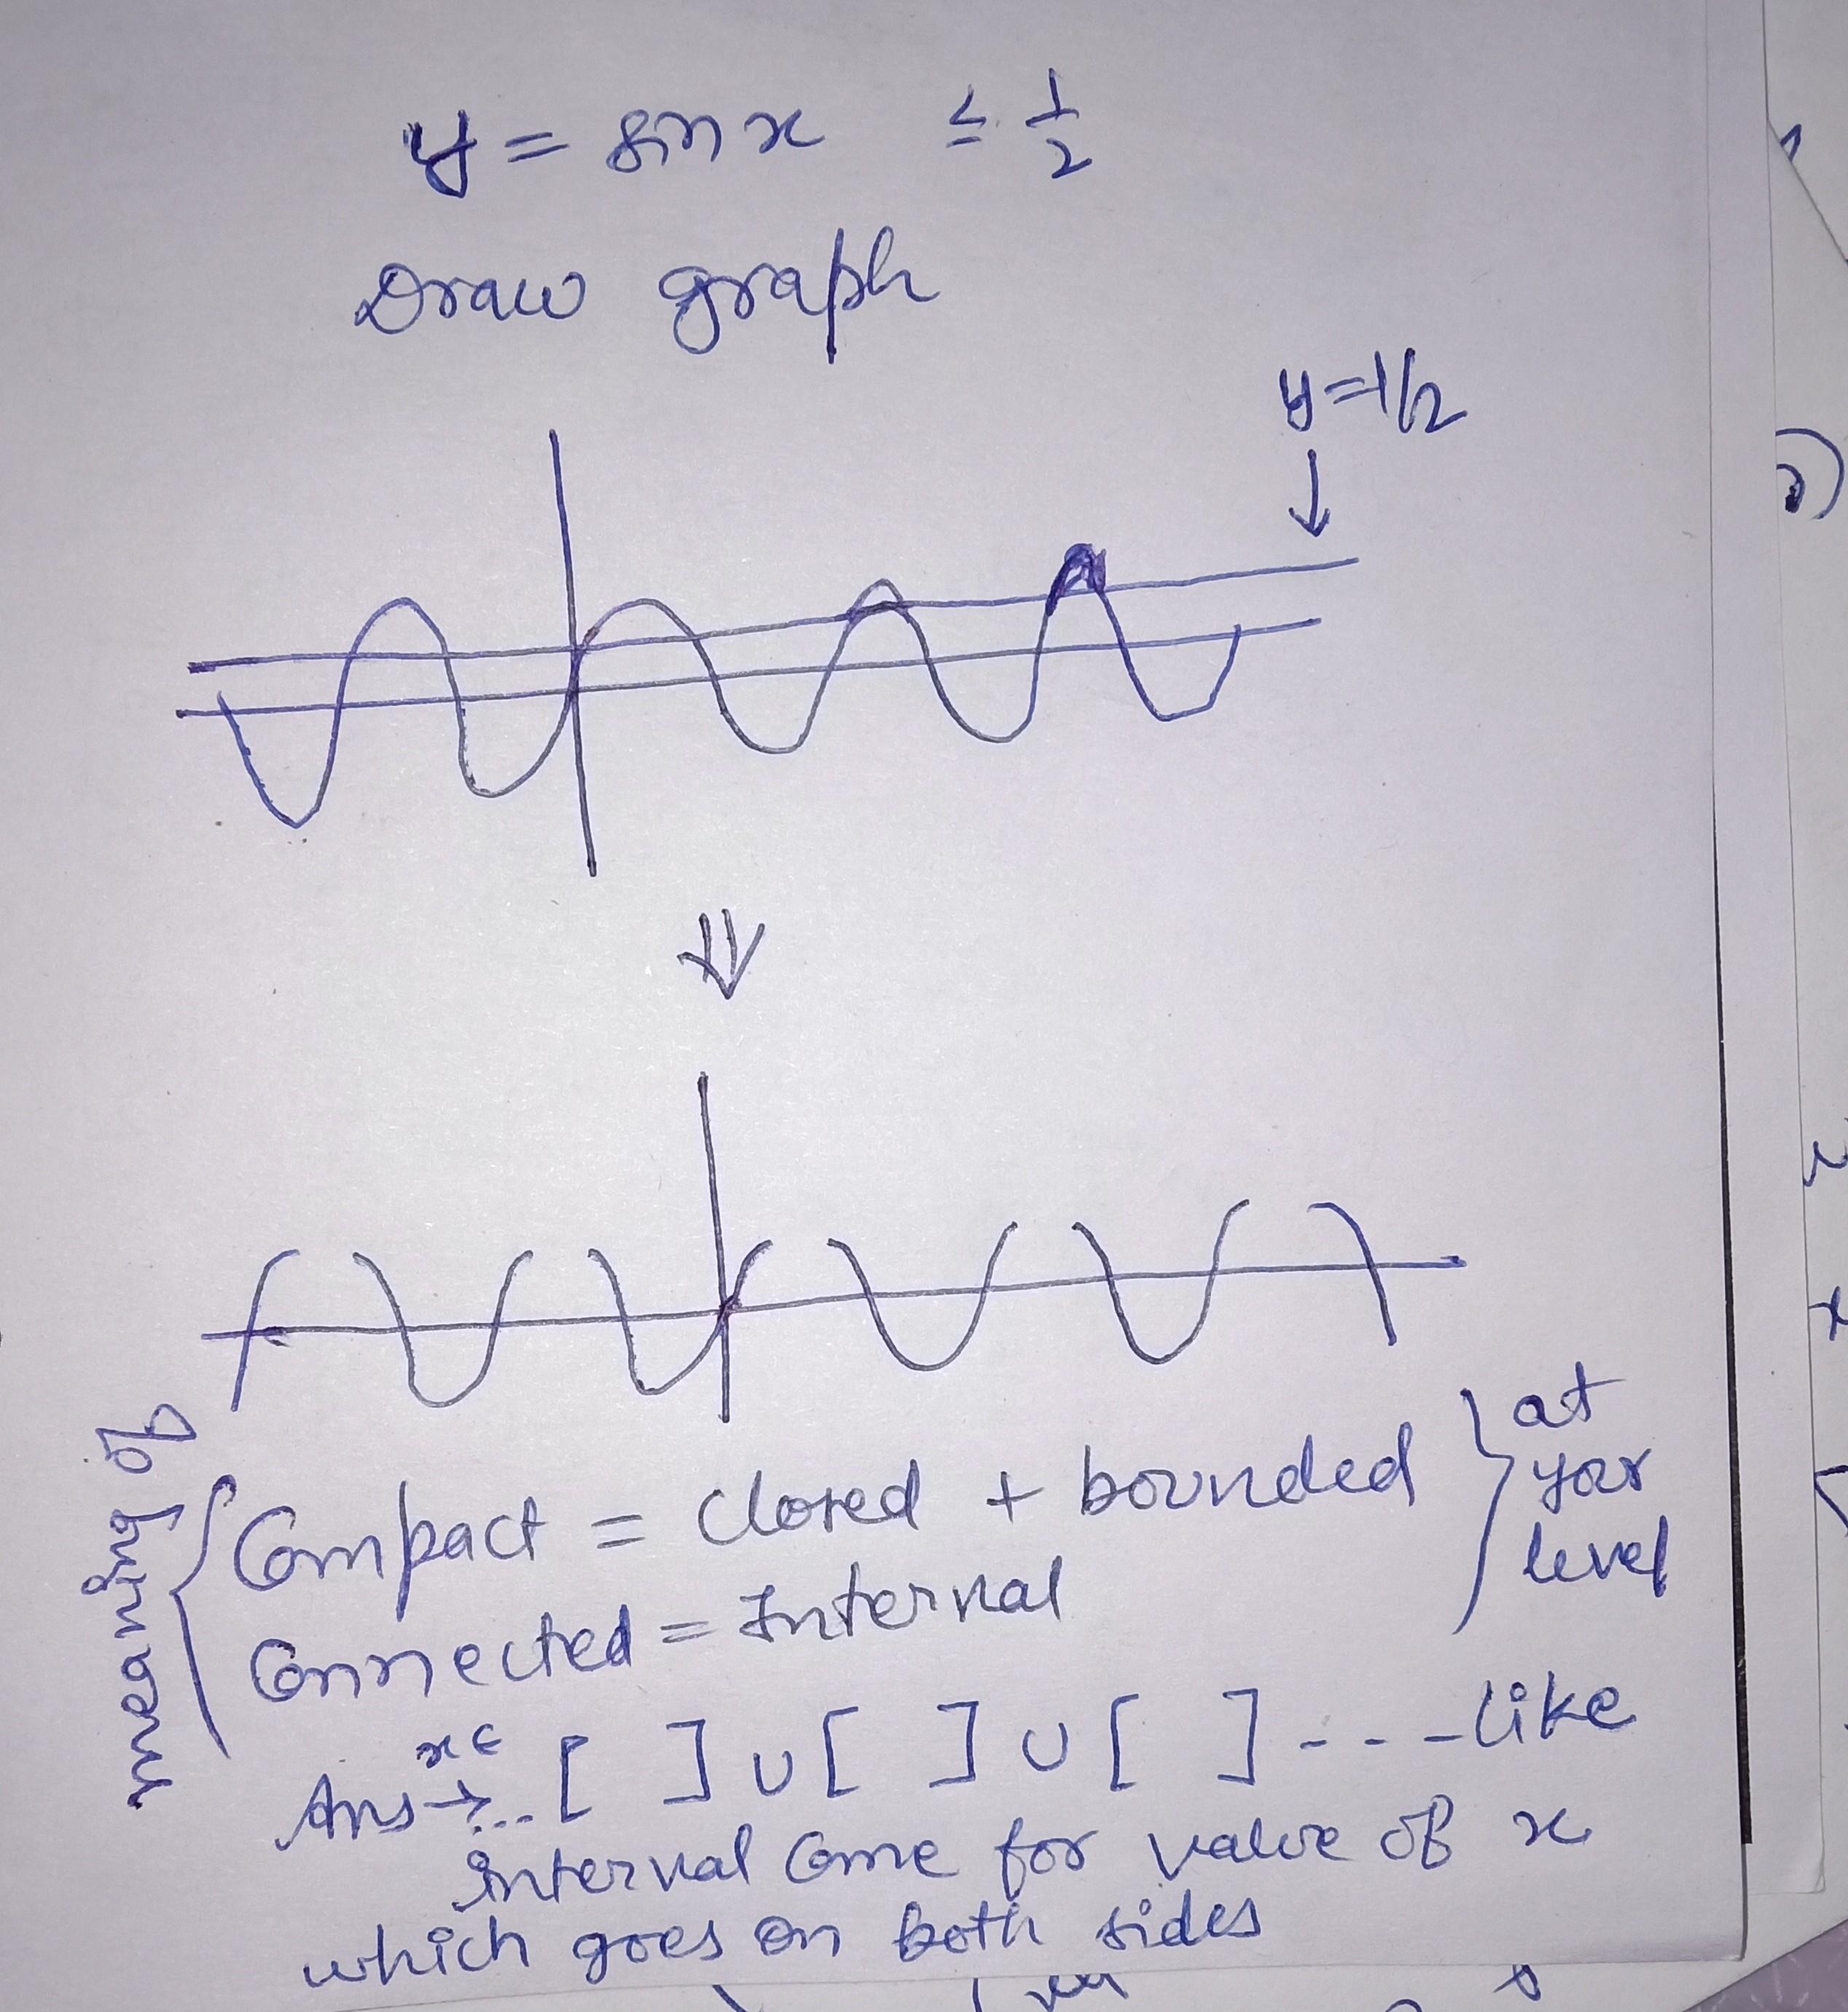 y = sin x ≤ 1/2
Draw graph
y=1/2
meaning of
Compact = closed + bounded
Connected = Interval
at
your
level
Ans → x ∈ ... [ ] ∪ [ ] ∪ [ ] - - - - like
interval come for value of x
which goes on both sides